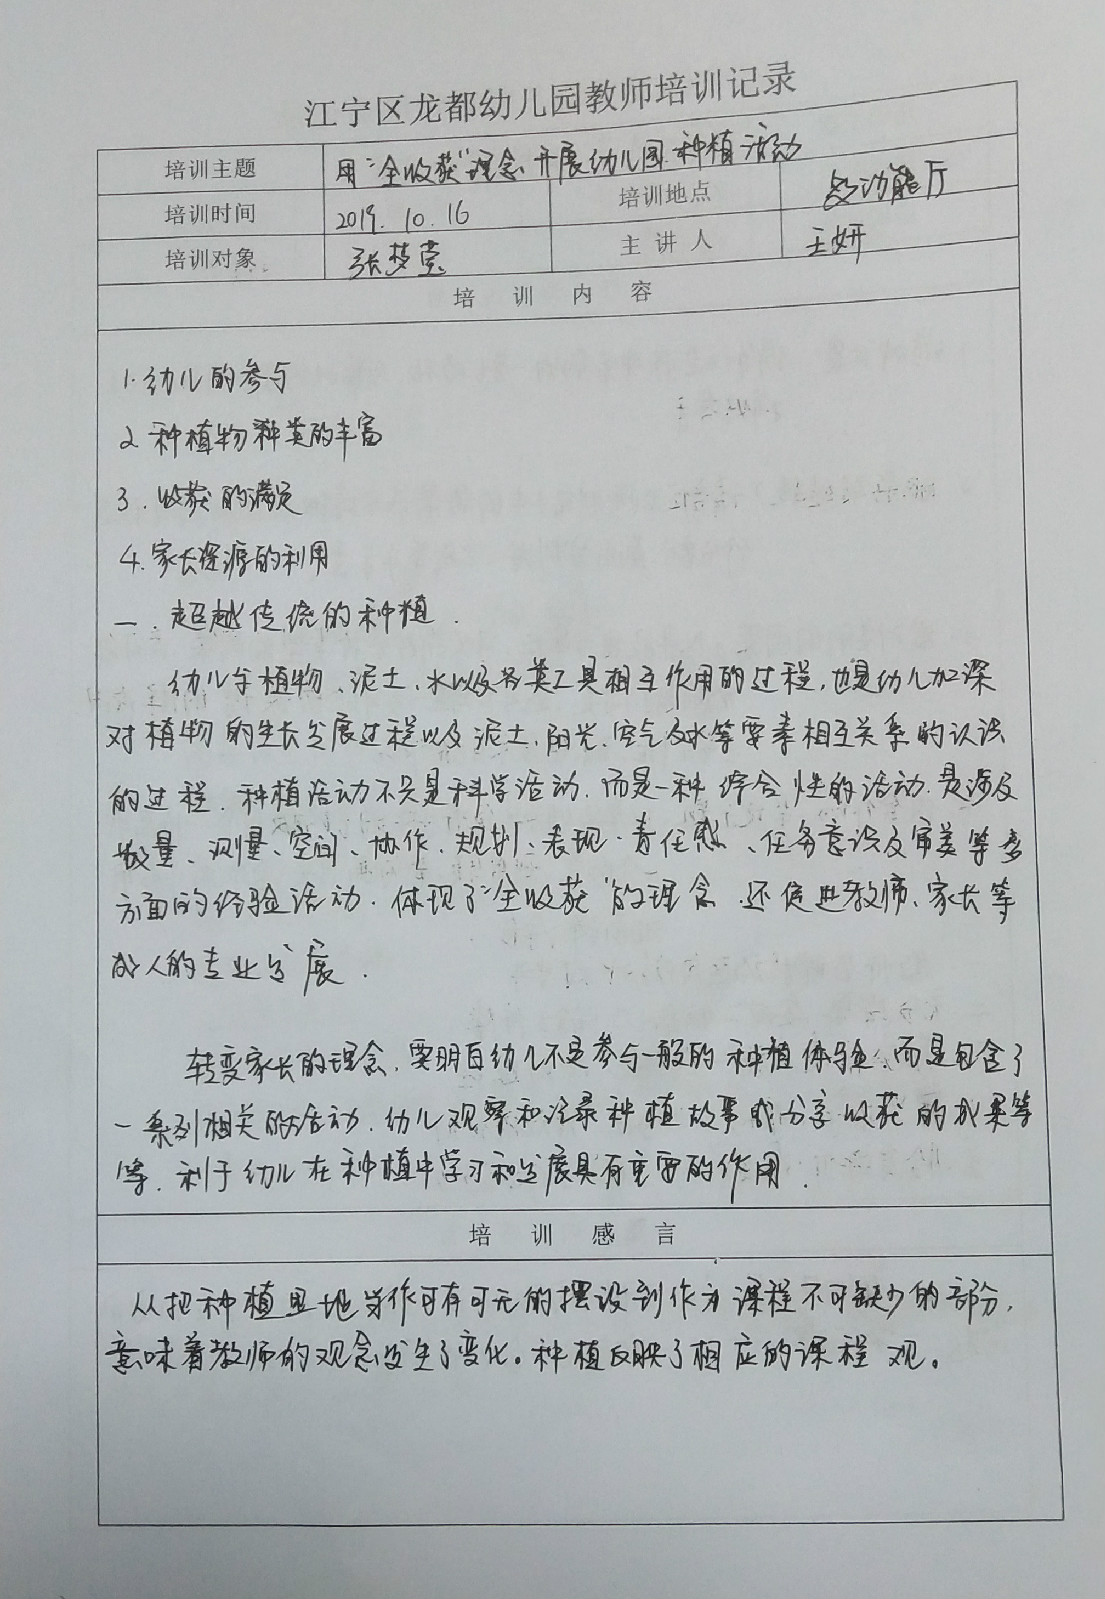 江宁区龙都幼儿园教师培训记录
培训主题 用“全收获”理念开展幼儿园种植活动
培训时间 2019.10.16 培训地点 多功能厅
培训对象 张梦莹 主讲人 王妍
培训内容
1.幼儿的参与
2.种植物种类的丰富
3.收获的满足
4.家长资源的利用
一.超越传统的种植.
幼儿与植物、泥土、水以及各类工具相互作用的过程,也是幼儿加深
对植物的生长发展过程以及泥土、阳光、空气及水等要素相互关系的认识
的过程.种植活动不只是科学活动.而是一种综合性的活动.是涉及
数量、测量、空间、协作、规划、表现、责任感、任务意识及审美等多
方面的经验活动.体现了“全收获”的理念.还促进教师、家长等
成人的专业发展.
转变家长的理念,要明白幼儿不是参与一般的种植体验,而是包含了
一系列相关的活动.幼儿观察和记录种植故事或分享收获的成果等
等.利于幼儿在种植中学习和发展具有重要的作用.
培训感言
从把种植园地当作可有可无的摆设到作为课程不可缺少的部分,
意味着教师的观念发生了变化。种植反映了相应的课程观。